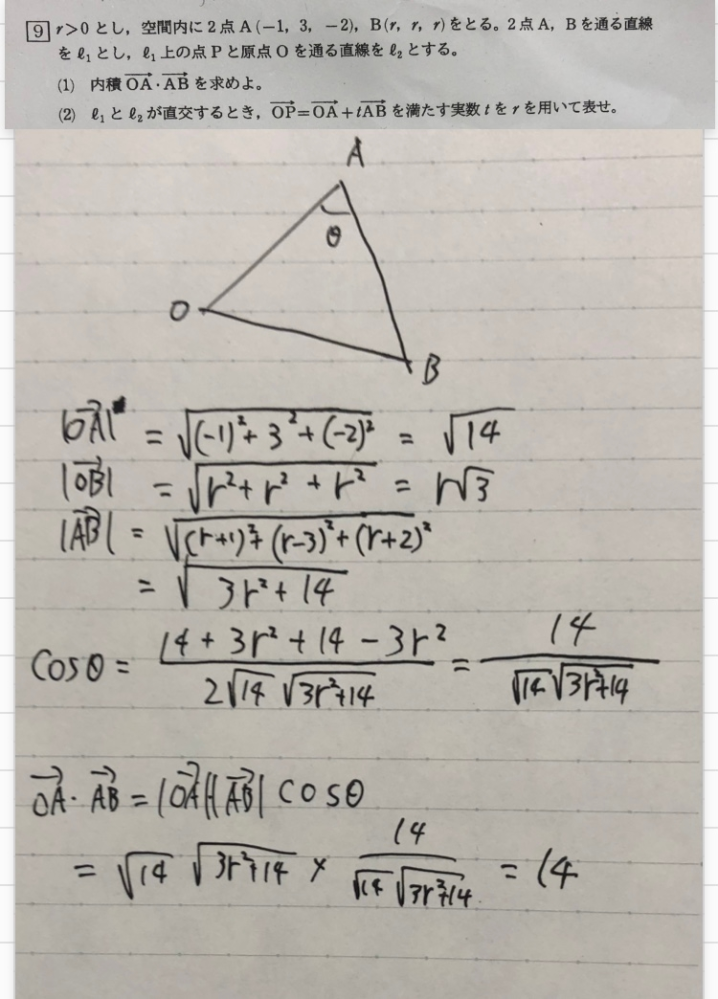 9 r>0とし，空間内に2点A(−1, 3, −2), B(r, r, r)をとる。2点A, Bを通る直線
をℓ₁とし，ℓ₁上の点Pと原点Oを通る直線をℓ₂とする。
(1) 内積OA→・AB→を求めよ。
(2) ℓ₁とℓ₂が直交するとき，OP→=OA→+tAB→を満たす実数tをrを用いて表せ。
A
θ
O
B
|OA→| = √((-1)²+3²+(-2)²) = √14
|OB→| = √(r²+r²+r²) = r√3
|AB→| = √((r+1)²+(r-3)²+(r+2)²)
= √(3r²+14)
cosθ = (14+3r²+14-3r²)/(2√14 √(3r²+14)) = 14/(√14 √(3r²+14))
OA→・AB→ = |OA→||AB→| cosθ
= √14 √(3r²+14) × 14/(√14 √(3r²+14)) = 14